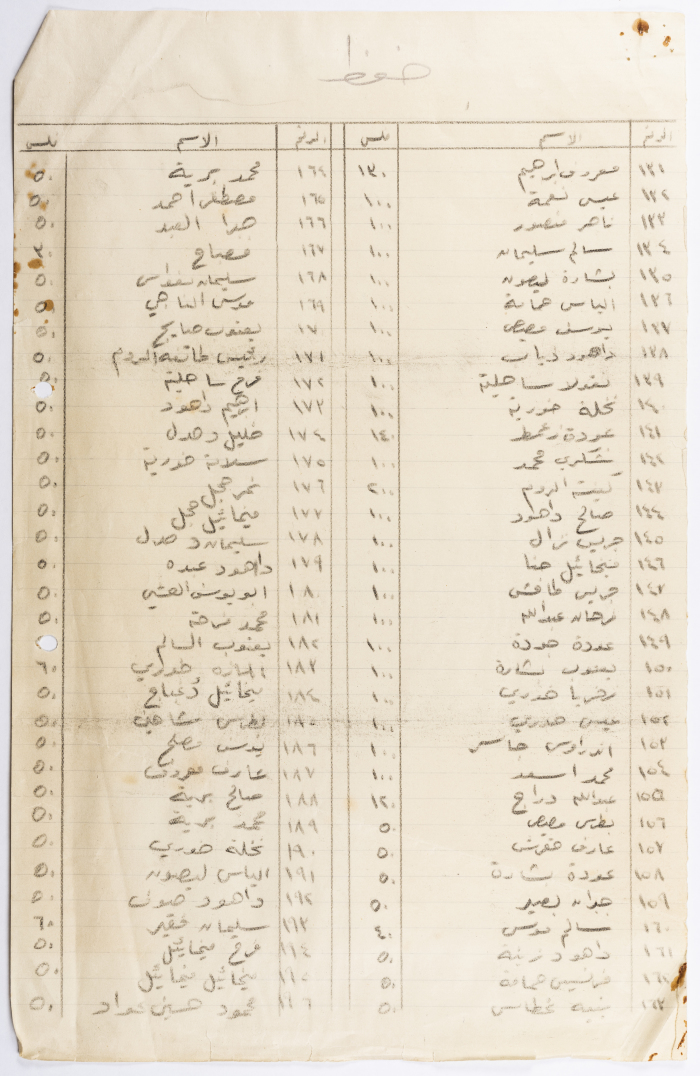 حفظ
الرقم الاسم فلس الرقم الاسم فلس
١٣١ معروف ابرهيم ١٣٠ ١٦٤ محمد برية ٥٠
١٣٢ عيسى نعمة ١٠٠ ١٦٥ مصطفى احمد ٥٠
١٣٣ ناصر منصور ١٠٠ ١٦٦ العبد ٥٠
١٣٤ سالم سليمان ١٠٠ ١٦٧ مصباح
١٣٥ بشارة ليصون ١٠٠ ١٦٨ سليمان نقولا ٥٠
١٣٦ الياس حمامة ١٠٠ ١٦٩ موسى الناجي ٥٠
١٣٧ يوسف مصيص ١٠٠ ١٧٠ يعقوب صايج ٥٠
١٣٨ داهود دياب ١٠٠ ١٧١ رئيس طائفة الروم ٥٠
١٣٩ نقولا ساحلية ١٠٠ ١٧٢ فرح ساحلية ٥٠
١٤٠ نخلة خورية ١٠٠ ١٧٣ ابرهيم داهود ٥٠
١٤١ عودة زعمط ١٤٠ ١٧٤ خليل ٥٠
١٤٢ شكري محمد ١٠٠ ١٧٥ سلامة خورية ٥٠
١٤٣ كنيسة الروم ٢٠٠ ١٧٦ نمر حجل ٥٠
١٤٤ صالح داهود ١٠٠ ١٧٧ ميخائيل حجل ٥٠
١٤٥ جريس نزال ١٠٠ ١٧٨ سليمان ٥٠
١٤٦ ميخائيل حنا ١٠٠ ١٧٩ داهود عبده ٥٠
١٤٧ جريس طافش ١٠٠ ١٨٠ ابو يوسف ٥٠
١٤٨ فرحان عبدالله ١٠٠ ١٨١ محمد فرحة ٥٠
١٤٩ عودة حودة ١٠٠ ١٨٢ يعقوب السالم
١٥٠ يعقوب بشارة ١٠٠ ١٨٣ خوري ٦٠
١٥١ زخريا خوري ١٠٠ ١٨٤ ميخائيل دعباج ٥٠
١٥٢ عيسى خوري ١٠٠ ١٨٥ بطرس شاهين ٥٠
١٥٣ اندراوس جاسر ١٠٠ ١٨٦ يونس مصلح ٥٠
١٥٤ محمد اسعد ١٠٠ ١٨٧ عارف معروف ٥٠
١٥٥ عبدالله دراج ١٢٠ ١٨٨ صالح برية ٥٠
١٥٦ بطرس مصيص ٥٠ ١٨٩ محمد برية ٥٠
١٥٧ عارف ٥٠ ١٩٠ نخلة خوري ٥٠
١٥٨ عودة بشارة ٥٠ ١٩١ الياس ليصون ٥٠
١٥٩ بصير ٥٠ ١٩٢ داهود ٥٠
١٦٠ سالم موسى ٤٠ ١٩٣ سليمان فقير ٦٠
١٦١ داهود زينة ٥٠ ١٩٤ فرح ميخائيل ٥٠
١٦٢ فرنسيس حمامة ٥٠ ١٩٥ ميخائيل ميخائيل ٥٠
١٦٣ غطاس ٥٠ ١٩٦ محمود حسين عواد ٥٠